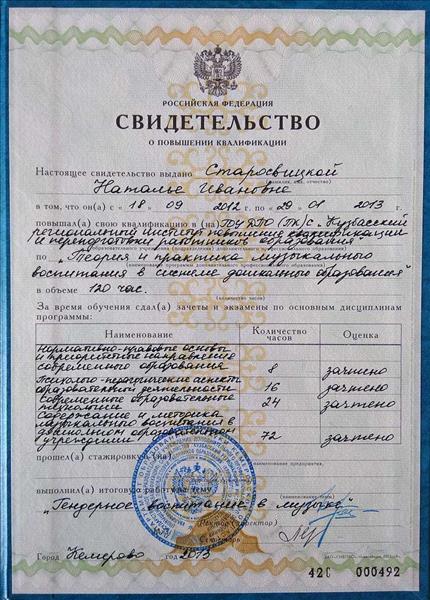 РОССИЙСКАЯ ФЕДЕРАЦИЯ
СВИДЕТЕЛЬСТВО
О ПОВЫШЕНИИ КВАЛИФИКАЦИИ
Настоящее свидетельство выдано Старосвицкой
(фамилия, имя, отчество)
Наталье Ивановне
в том, что он(а) с «18» 09 2012 г. по «29» 01 2013 г.
повышал(а) свою квалификацию в (на) ГОУ ДПО (ПК)С „Кузбасский
региональный институт повышения квалификации
и переподготовки работников образования"
по „Теория и практика музыкального
воспитания в системе дошкольного образования"
в объеме 120 час.
(количество часов)
За время обучения сдал(а) зачеты и экзамены по основным дисциплинам
программы:
Наименование Количество часов Оценка
Нормативно-правовые основы
и приоритетные направления
современного образования 8 зачтено
Психолого-педагогические аспекты
образовательной деятельности 16 зачтено
Современные образовательные
24 зачтено
Содержание и методика
музыкального воспитания в
дошкольном образовательном
учреждении 72 зачтено
прошел(а) стажировку в (на)
(наименование предприятия,
выполнил(а) итоговую работу на тему
(наименование темы)
„Гендерное воспитание в музыке"
Ректор (директор)
Секретарь
Город Кемерово 2013
42С 000492